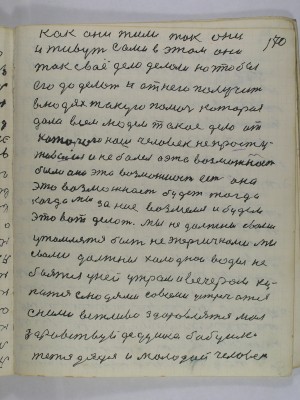 170
как они жили так они
и живут сами в этом они
так своё дело делали но чтобы
его доделат и от него получит
в людях такую помощ которая
дала всем людям такое дело от
которого наш человек не просту-
жался и не болел а эта возможност
была она эта возможност ест она
это возможност будет тогда
когда мы за них возмемся и будем
это вот делат. мы не должны своим
утомлятся быт не жернчками мы
сами должны холодной воды не
боятся у ней утрам и вечером ку-
патся с людями совсеми встречатся
с ними вежливо здоровлятся мол
здравствуй дедушка бабушка
тетя дядя и молодой человек